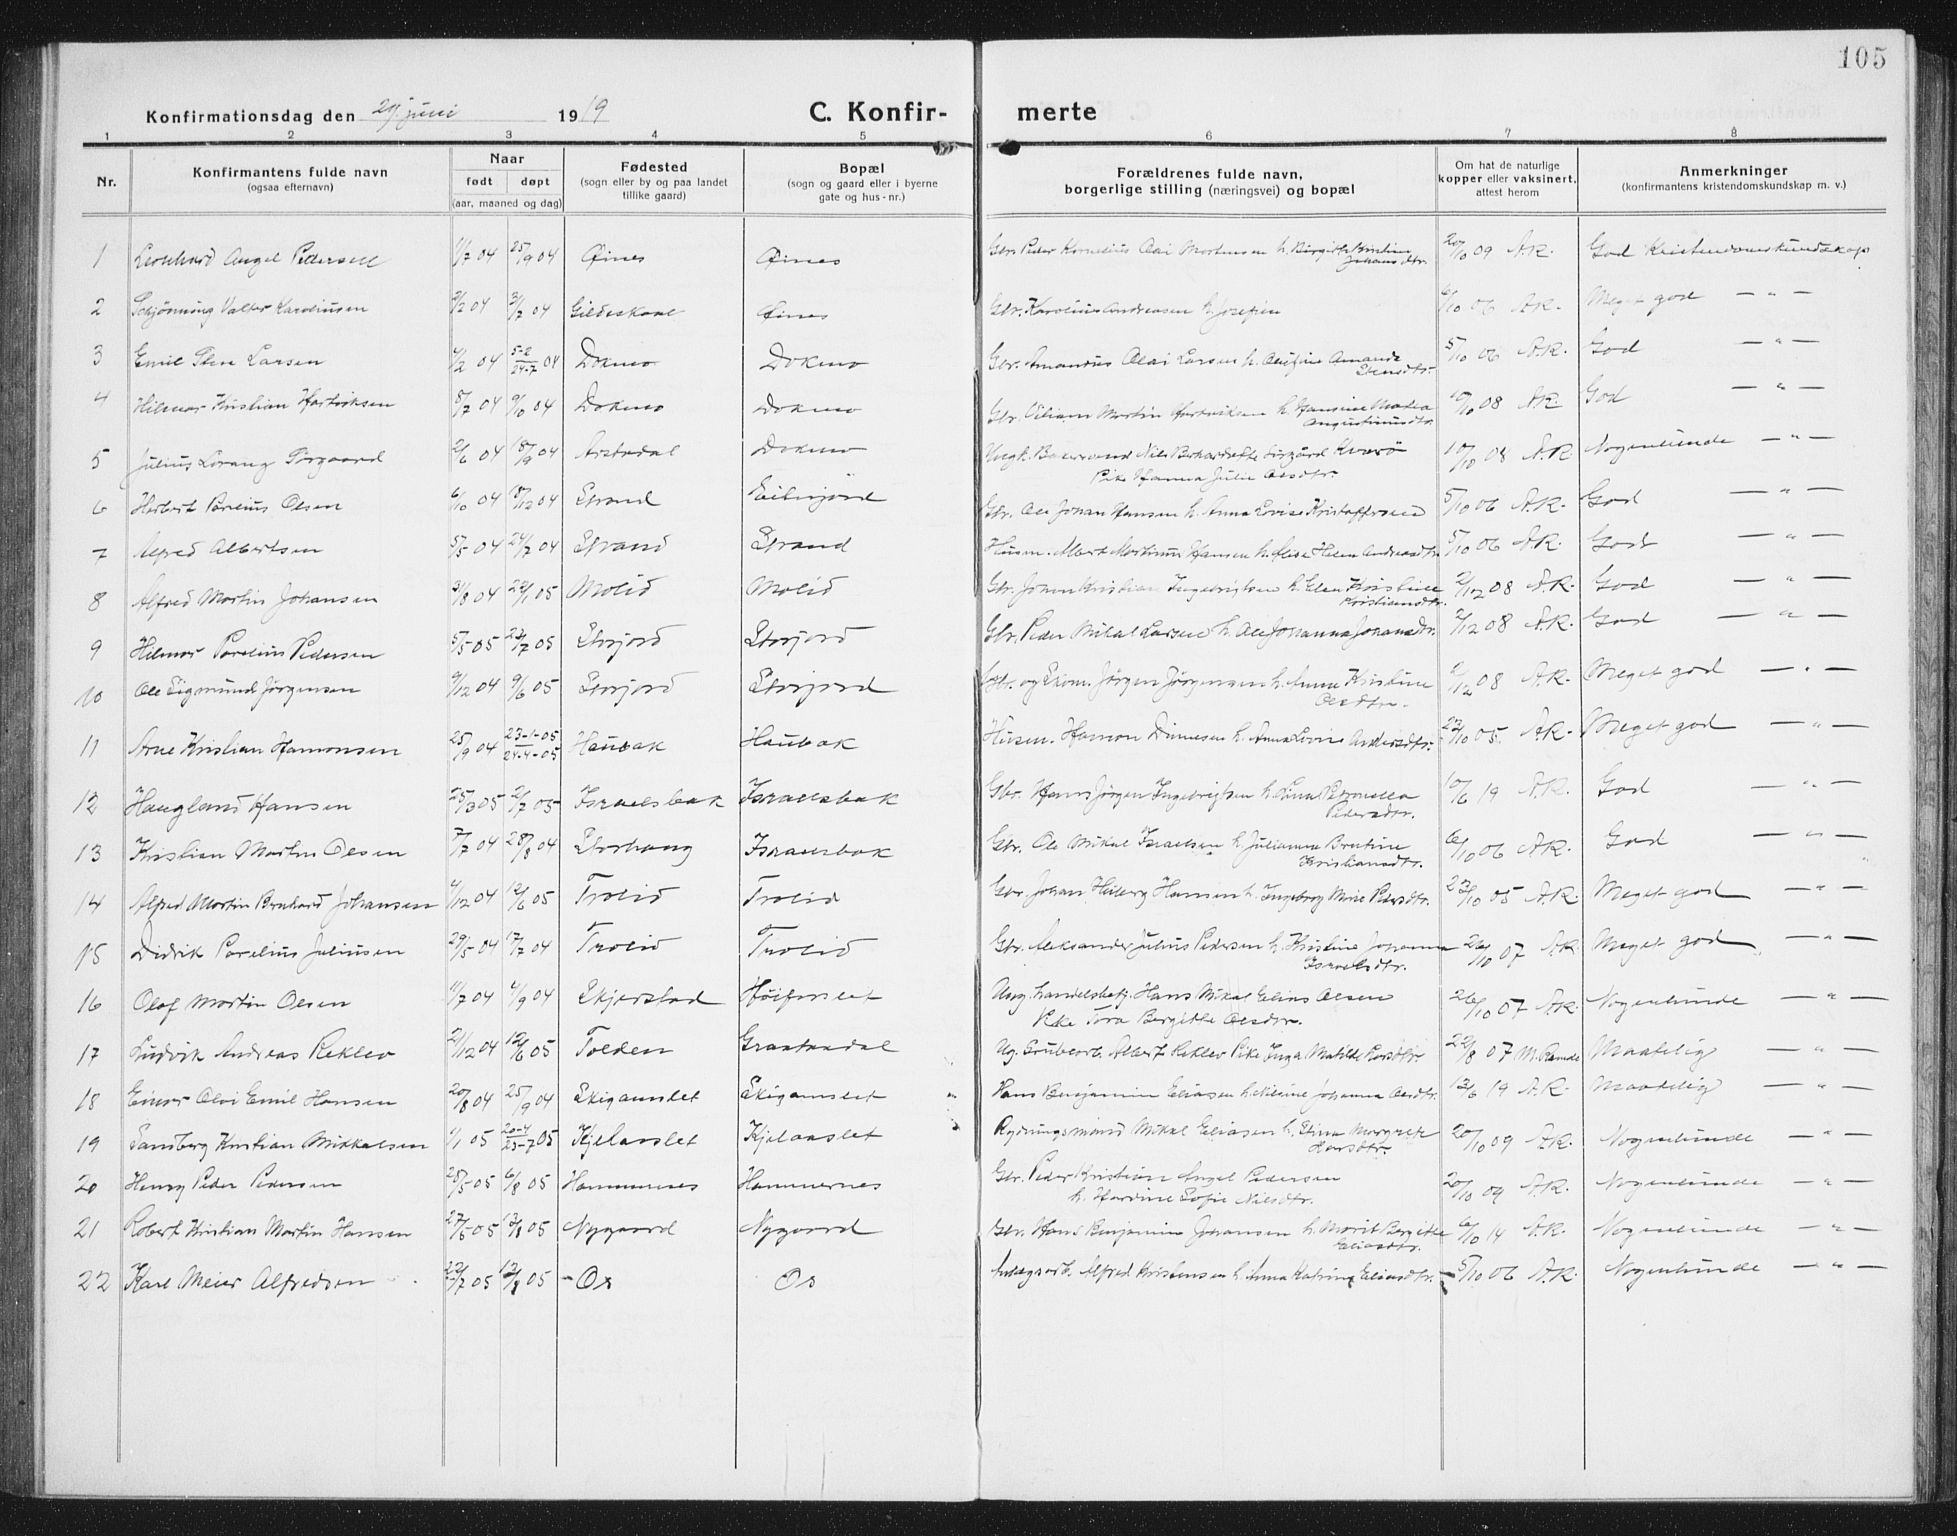 105
Konfirmationsdag den 29. juni 1919 C. Konfir- merte
1 2 3 4 5 6 7 8
Nr. Konfirmantens fulde navn (ogsaa efternavn) Naar født døpt (aar, maaned og dag) Fødested (sogn eller by og paa landet tillike gaard) Bopæl (sogn og gaard eller i byerne gate og hus-nr.) Forældrenes fulde navn, borgerlige stilling (næringsvei) og bopæl Om hat de naturlige kopper eller vaksinert, attest herom Anmerkninger (konfirmantens kristendomskundskap m. v.)
1 Leonhard Angel Pedersen 1/7 04 25/9 04 Øines Øines Gbr. Peder Kornelius Olai Mortensen h. Birgitte Kristine Johansdtr. 20/10 09 A.R. God Kristendomskundskap
2 Schjønning Valter Karoliussen 2/2 04 3/7 04 Gildeskaal Øines Gbr. Karolius Andreasen h. Josefine 6/10 06 A.R. Meget god — " —
3 Emil Sten Larsen 4/2 04 5-2 24-7 04 Dokmo Dokmo Gbr. Amandus Olai Larsen h. Amanda Stensdtr. 5/10 06 A.R. God — " —
4 Hilmar Kristian Hartviksen 5/7 04 9/10 04 Dokmo Dokmo Gbr. Martin Hartviksen h. Hansine Augustinusdtr. 10/10 08 A.R. God — " —
5 Julius Lorang Sørgaard 2/6 04 18/9 04 Arstadal Dokmo Nils Kvarø Pike Hanna Julie Olsdtr. 10/10 08 A.R. Nogenlunde — " —
6 Herbert Parelius Olsen 6/10 04 18/12 04 Strand Eilinjord Gbr. Ole Johan Hansen h. Anna Lovise Kristoffersen 5/10 06 A.R. God — " —
7 Alfred Albertsen 5/5 04 24/7 04 Strand Strand Husm. Albert Martinus Hansen h. Helen Andreasdtr. 5/10 06 A.R. God — " —
8 Alfred Martin Johansen 31/8 04 22/1 05 Molid Molid Gbr. Johan Kristian Ingebrigtsen h. Elen Kristine Kristiansdtr. 2/12 08 A.R. God — " —
9 Hilmar Parelius Pedersen 5/5 05 23/7 05 Storjord Storjord Gbr. Peder Mikal Larsen h. Johanna Johansdtr. 2/12 08 A.R. God — " —
10 Ole Sigmund Jørgensen 9/12 04 9/6 05 Storjord Storjord Gbr. og Skom. Jørgen Jørgensen h. Anna Kristine Olsdtr. 2/12 08 A.R. Meget god — " —
11 Arne Kristian Hamonsen 25/9 04 23-1-05 24-4-05 Haubak Haubak Husm. Hamon h. Anna Lovise Andersdtr. 23/10 05. A.R. Meget god — " —
12 Haugland Hansen 25/3 05 2/7 05 Israelsbak Israelsbak Gbr. Hans Jørgen Ingebrigtsen h. Petronella Pedersdtr. 10/6 19 A.R. God — " —
13 Kristian Martin Olsen 7/7 04 28/8 04 Storhaug Israelsbak Gbr. Ole Mikal Israelsen h. Julianna Kristiansdtr. 6/10 06 A.R. God — " —
14 Alfred Martin Bernhard Johansen 4/12 04 12/6 05 Trolid Trolid Gbr. Johan Hilberg Hansen h. Ingeborg Marie Pedersdtr. 23/10 05 A.R. Meget god — " —
15 Didrik Parelius Juliussen 29/5 04 17/7 04 Trolid Trolid Gbr. Aleksander Julius Pedersen h. Kristine Johanna Israelsdtr. 26/10 07 A.R. Meget god — " —
16 Olaf Martin Olsen 11/7 04 4/9 04 Skjerstad Høiforslet Ung. handelsbetj. Hans Mikal Elias Olsen Pike Tora Bergitte Olsdtr. 26/10 07 A.R. Nogenlunde — " —
17 Ludvik Andreas Reklev 21/12 04 12/6 05 Tolden Graataadal Ug. Grubearb. Albert Reklev Pike Inga Matilde Larsdtr. 22/8 07 M. Ramde Maadelig — " —
18 Einar Olvi Emil Hansen 20/8 04 25/9 04 Skigamslet Skigamslet Hans Benjamin Eliasen h. Johanna Olsdtr. 13/6 19 A.R. Maadelig — " —
19 Sandberg Kristian Mikkalsen 1/1 05 20-4 23-7 05 Kjelaaslet Kjelaaslet Rydningsmand Mikal Eliasen h. Stina Margrete Larsdtr. 20/10 09 A.R. Nogenlunde — " —
20 Henry Peder Pedersen 25/5 05 6/8 05 Hammernes Hammernes Gbr. Peder Kristian Angel Pedersen h. Hardine Sofie Nilsdtr. 20/10 09 A.R. Nogenlunde — " —
21 Robert Kristian Martin Hansen 27/5 05 13/8 05 Nygaard Nygaard Gbr. Hans Benjamin Johansen h. Marit Bergitte Eliasdtr. 6/10 14 A.R. Nogenlunde — " —
22 Karl Meier Alfredsen 22/7 05 13/8 05 Os Os Anlægsarb. Alfred Kristensen h. Anna Katrina Eliasdtr. 5/10 06 A.R. Nogenlunde — " —